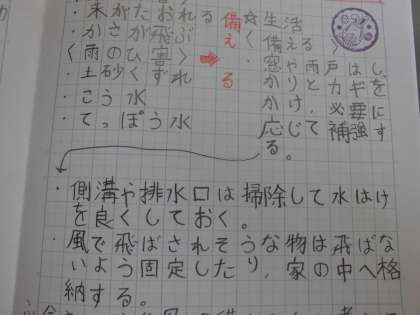 ・木がたおれる
・かさが飛ぶ
〈雨のひ害〉
・土砂くずれ
・こう水
・てっぽう水
備える
☆生活
〈備える〉
・窓や雨戸はし
かりとカギを
かけ、必要に
応じて補強す
る。
・側溝や排水口は掃除して水はけ
を良くしておく。
・風で飛ばされそうな物は飛ばな
いよう固定したり、家の中へ格
納する。